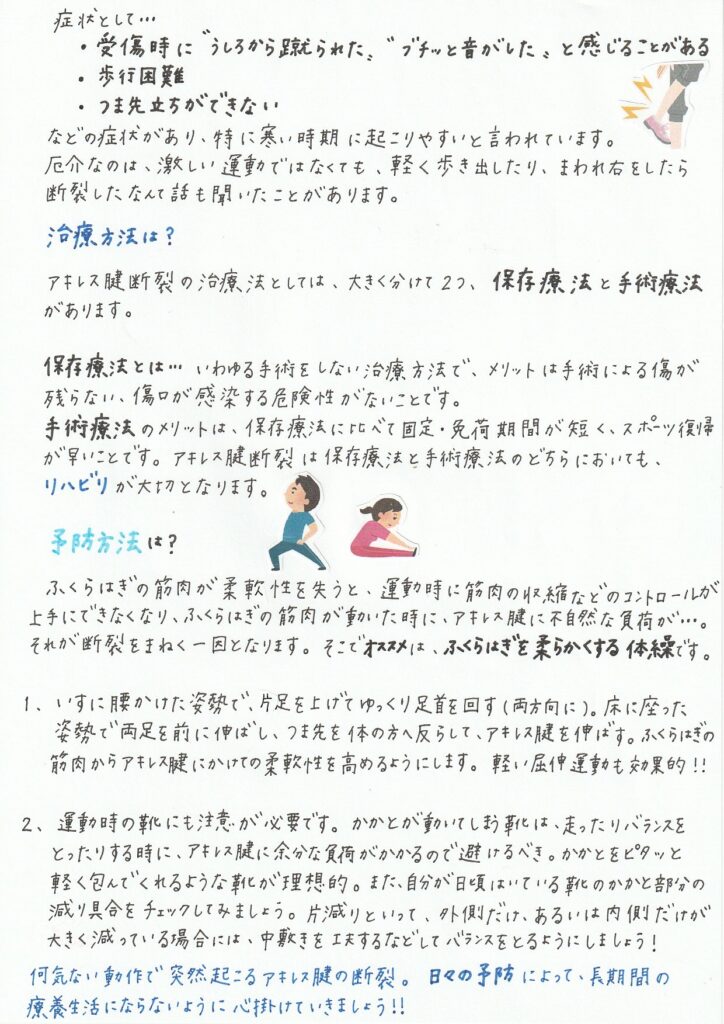 症状として…
・受傷時に〝うしろから蹴られた〟〝ブチッと音がした〟と感じることがある
・歩行困難
・つま先立ちができない
などの症状があり、特に寒い時期に起こりやすいと言われています。
厄介なのは、激しい運動ではなくても、軽く歩き出したり、まわれ右をしたら
断裂したなんて話も聞いたことがあります。
治療方法は?
アキレス腱断裂の治療法としては、大きく分けて2つ、保存療法と手術療法
があります。
保存療法とは… いわゆる手術をしない治療方法で、メリットは手術による傷が
残らない、傷口が感染する危険性がないことです。
手術療法のメリットは、保存療法に比べて固定・免荷期間が短く、スポーツ復帰
が早いことです。アキレス腱断裂は保存療法と手術療法のどちらにおいても、
リハビリが大切となります。
予防方法は?
ふくらはぎの筋肉が柔軟性を失うと、運動時に筋肉の収縮などのコントロールが
上手にできなくなり、ふくらはぎの筋肉が動いた時に、アキレス腱に不自然な負荷が…。
それが断裂をまねく一因となります。そこでオススメは、ふくらはぎを柔らかくする体操です。
1、いすに腰かけた姿勢で、片足を上げてゆっくり足首を回す(両方向に)。床に座った
姿勢で両足を前に伸ばし、つま先を体の方へ反らして、アキレス腱を伸ばす。ふくらはぎの
筋肉からアキレス腱にかけての柔軟性を高めるようにします。軽い屈伸運動も効果的!!
2、運動時の靴にも注意が必要です。かかとが動いてしまう靴は、走ったりバランスを
とったりする時に、アキレス腱に余分な負荷がかかるので避けるべき。かかとをピタッと
軽く包んでくれるような靴が理想的。また、自分が日頃はいている靴のかかと部分の
減り具合をチェックしてみましょう。片減りといって、外側だけ、あるいは内側だけが
大きく減っている場合には、中敷きを工夫するなどしてバランスをとるようにしましょう!
何気ない動作で突然起こるアキレス腱の断裂。日々の予防によって、長期間の
療養生活にならないように心掛けていきましょう!!